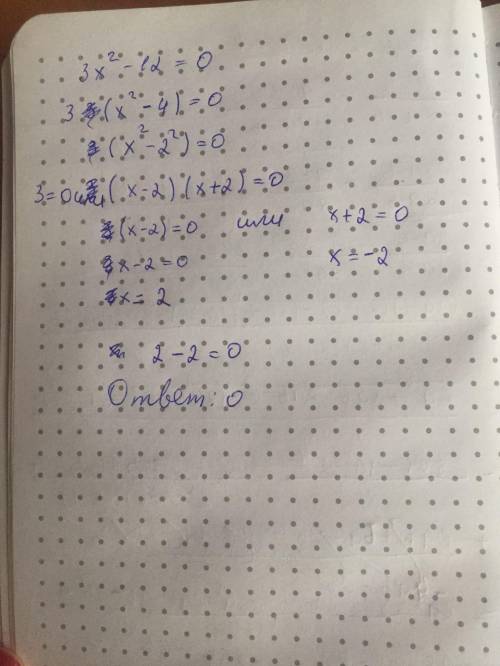 3x² - 12 = 0
3 (x² - 4) = 0
(x² - 2²) = 0
3 = 0 или (x - 2) (x + 2) = 0
(x - 2) = 0 или x + 2 = 0
x - 2 = 0 x = -2
x = 2
2 - 2 = 0
Ответ: 0